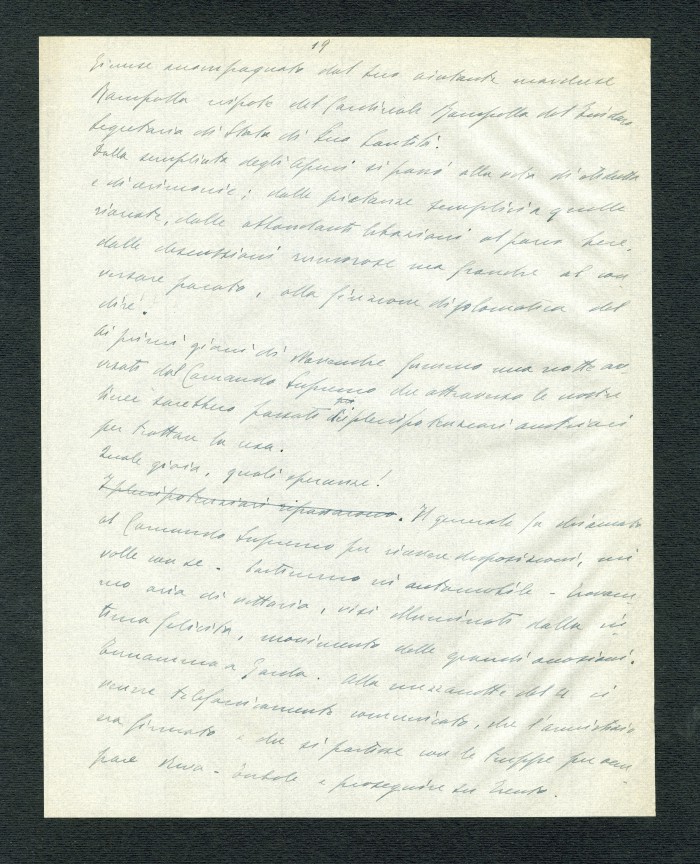 19
Giunse accompagnato dal suo aiutante marchese
Rampolla nipote del Cardinale Rampolla del Tindaro
Segretario di Stato di Sua Santità.
Dalla semplicità degli Alpini si passò alla vita di etichetta
e di cerimonie; dalle pietanze semplici a quelle
ricercate, dalle abbondanti libazioni al parco bere,
dalle discussioni rumorose ma franche al con
versare pacato, alla finzione diplomatica del
dire!
Ai primi giorni di Novembre fummo una notte av
visati dal Comando Supremo che attraverso le nostre
linee sarebbero passati i plenipotenziari austriaci
per trattare la resa.
Quale gioia, quali speranze!
I plenipotenziari ripassarono. Il generale fu chiamato
al Comando Supremo per ricevere disposizioni, mi
volle con se. Partimmo in automobile - trovam
mo aria di vittoria, visi illuminati dalla in
tima felicità, movimento delle grandi occasioni.
Tornammo a Garda. Alla mezzanotte del 4 ci
venne telefonicamente comunicato, che l'armistizio
era firmato e che si partisse con le truppe per occu
pare Riva - e proseguire su Trento.